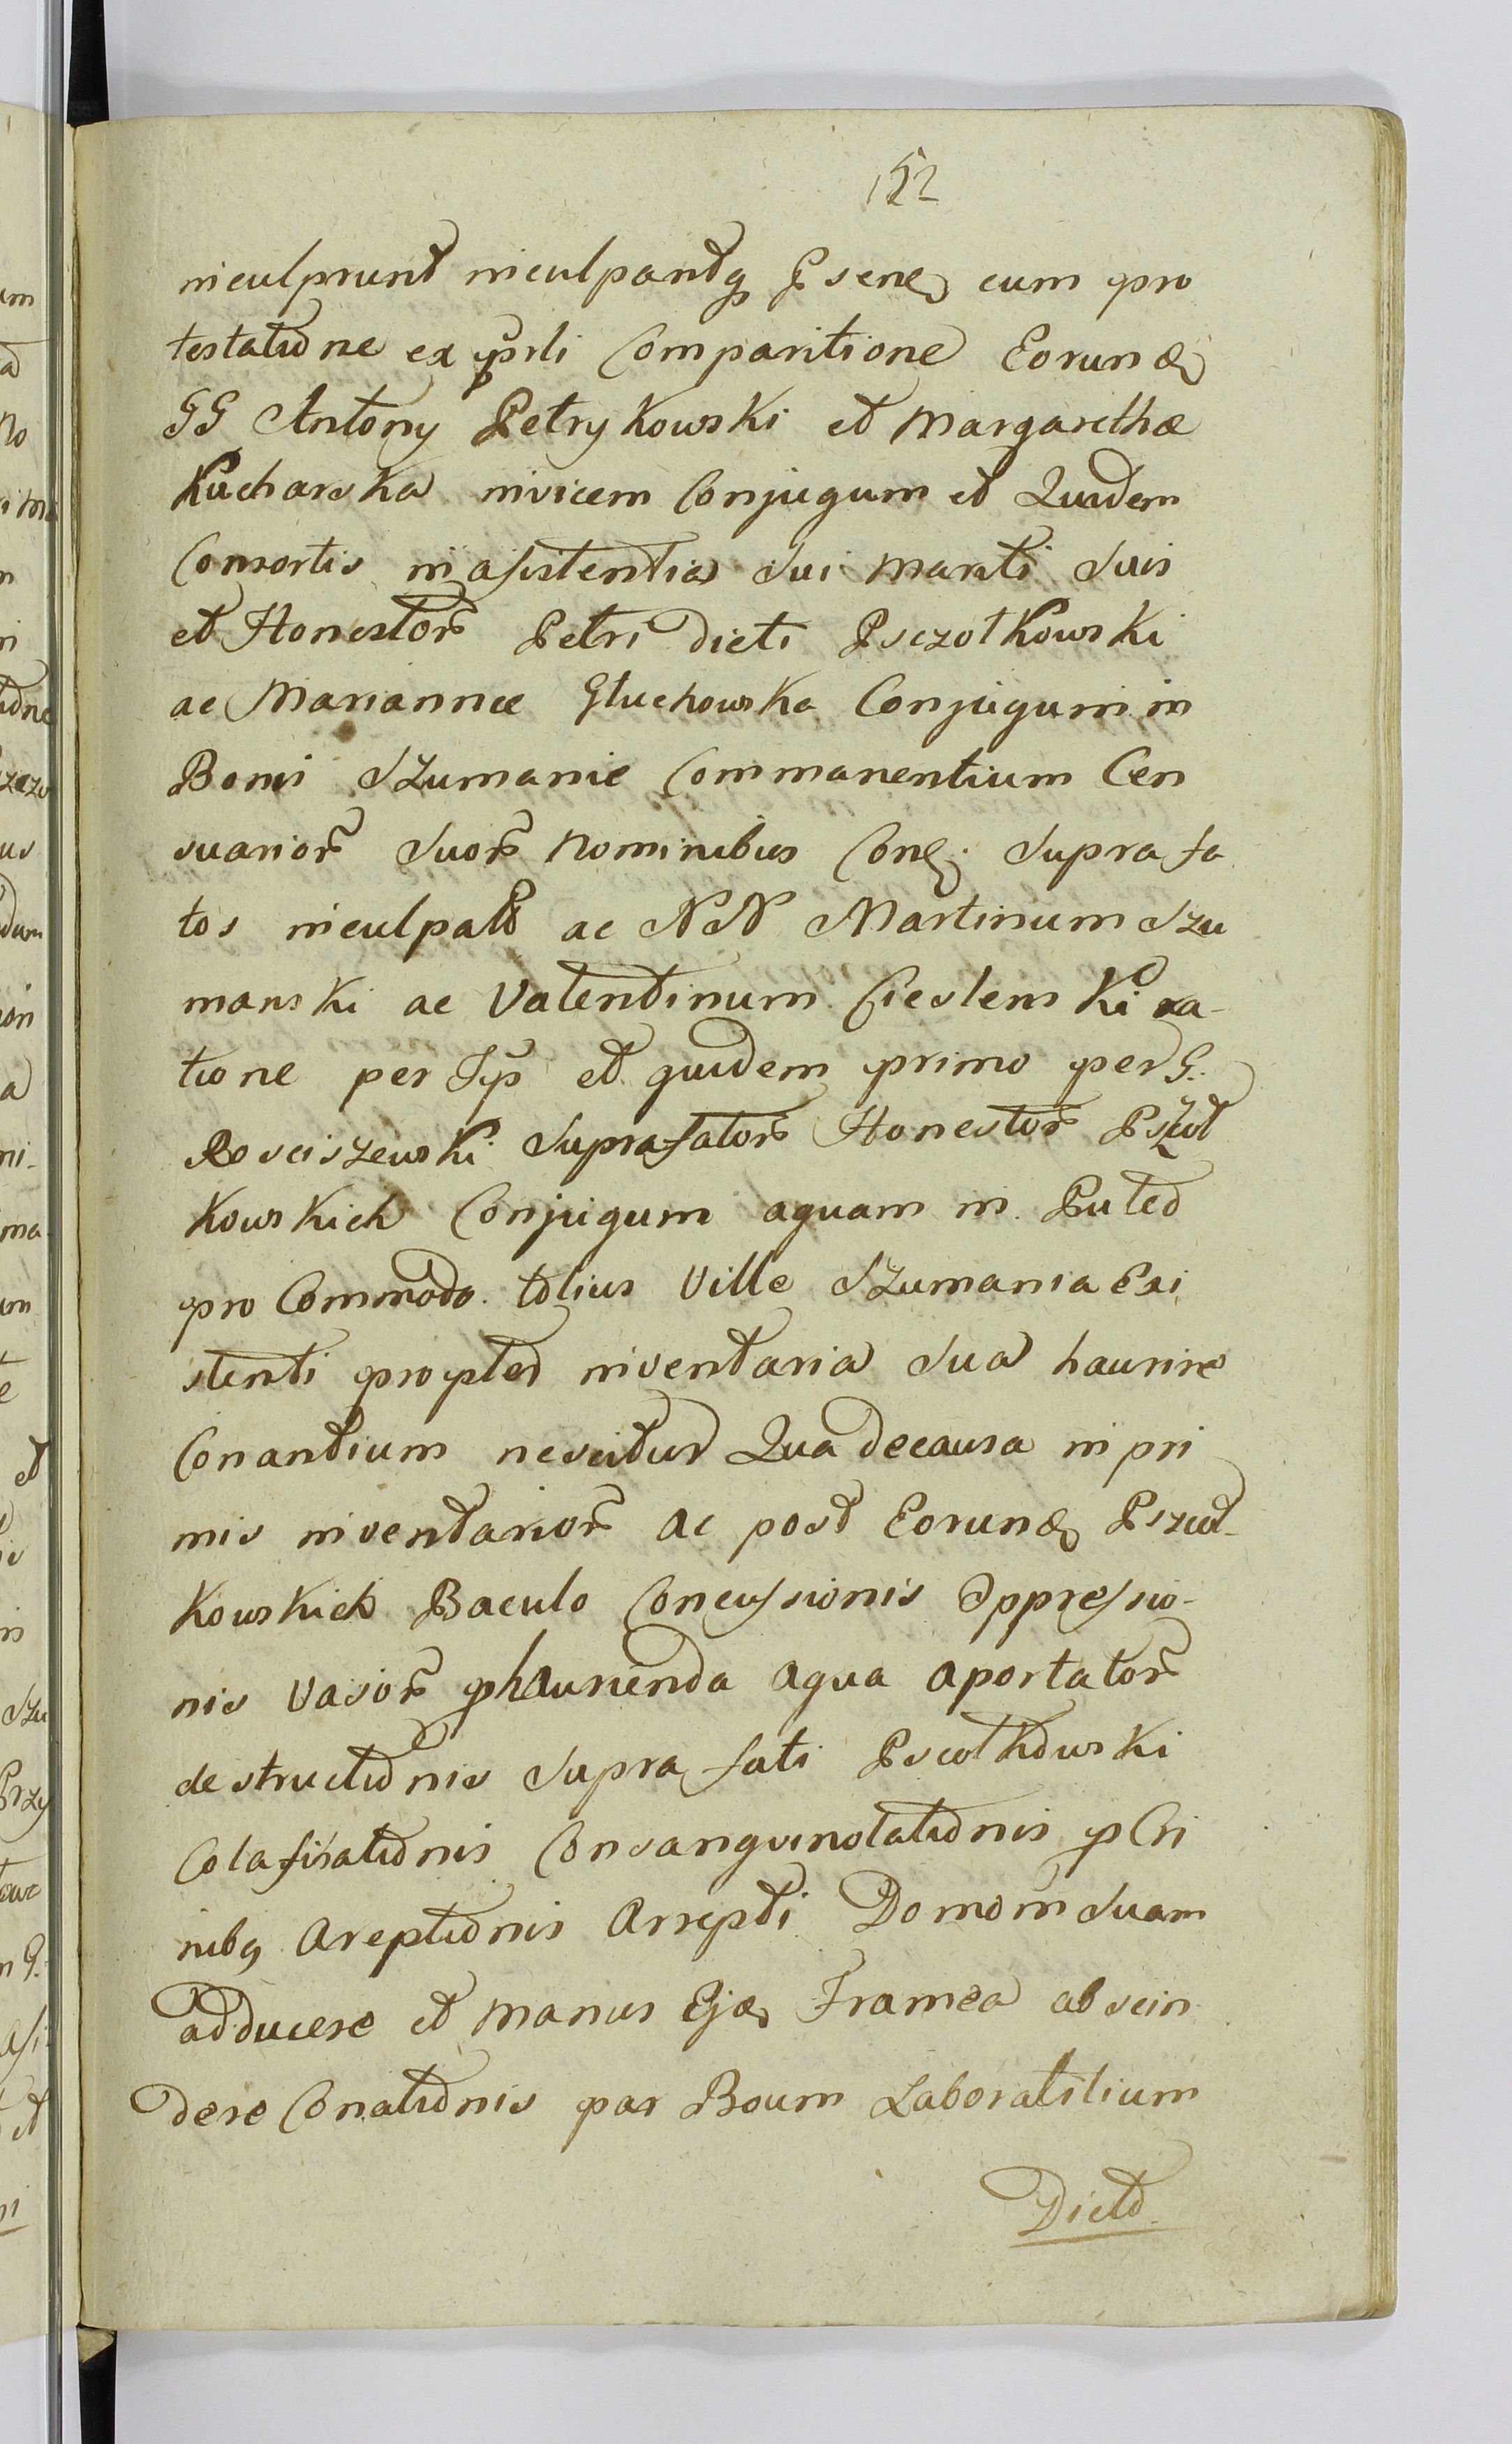 152
inculparunt inculpantq Psenes cum pro
testatione ex psli Comparitione Eorundē
GG Antony Petrykowski et Margarethæ
Kucharska invicem Conjugum et Quidem
Consortis in asistentia sui mariti suis
et Honestor Petri dicti Psczołkowski
ac Mariannæ Głuchowska Conjugum in
Bonis Szumanie Commanentium Cen
suarior suor nominibus Cone. suprafa
tos inculpatt ac NN Martinum Szu
manski ac Valentinum Cieslenski ra-
tione per Isp et quidem primo per G.
Rosciszewski suprafator Honestor Pszoł
kowskich Conjugum aquam in Puteo
pro Commodo totius Ville Szumania Exi
stenti propter inventaria sua haurire
Conantium nescitur Qua de causa in pri
mis inventarior ac post Eorundē Pszoł-
kowskich Baculo Concussionis Oppressio-
nis vasor p haurienda aqua aportator
destructionis suprafati Pscołkowski
Colafisationis Consanguinolationis p Cri
nibq areptionis Arrepti Domom suam
adducere et manus Ejdē Framea abscin
dere Conationis par Boum Laboratilium
Dicto